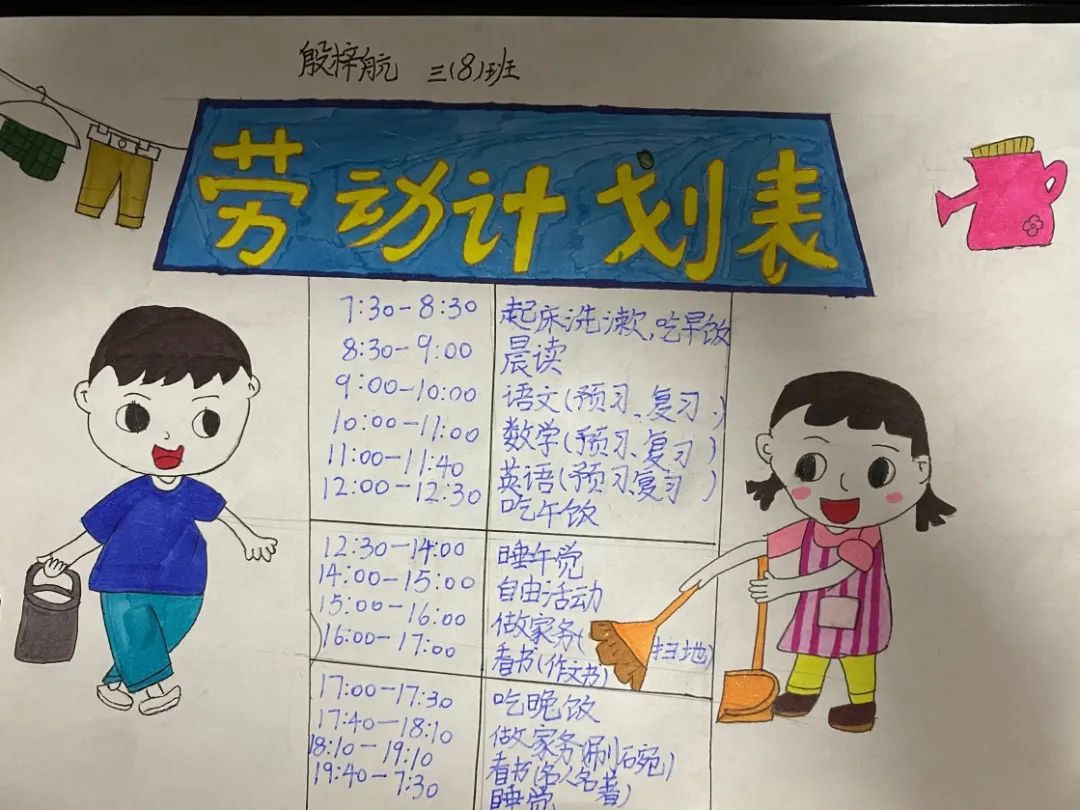 殷梓航 三(8)班
劳动计划表
7:30-8:30 起床洗漱,吃早饭
8:30-9:00 晨读
9:00-10:00 语文(预习、复习、)
10:00-11:00 数学(预习、复习)
11:00-11:40 英语(预习、复习)
12:00-12:30 吃午饭
12:30-14:00 睡午觉
14:00-15:00 自由活动
15:00-16:00 做家务(扫地)
16:00-17:00 看书(作文书)
17:00-17:30 吃晚饭
17:40-18:10 做家务(刷碗)
18:10-19:10 看书(名人名著)
19:40-7:30 睡觉